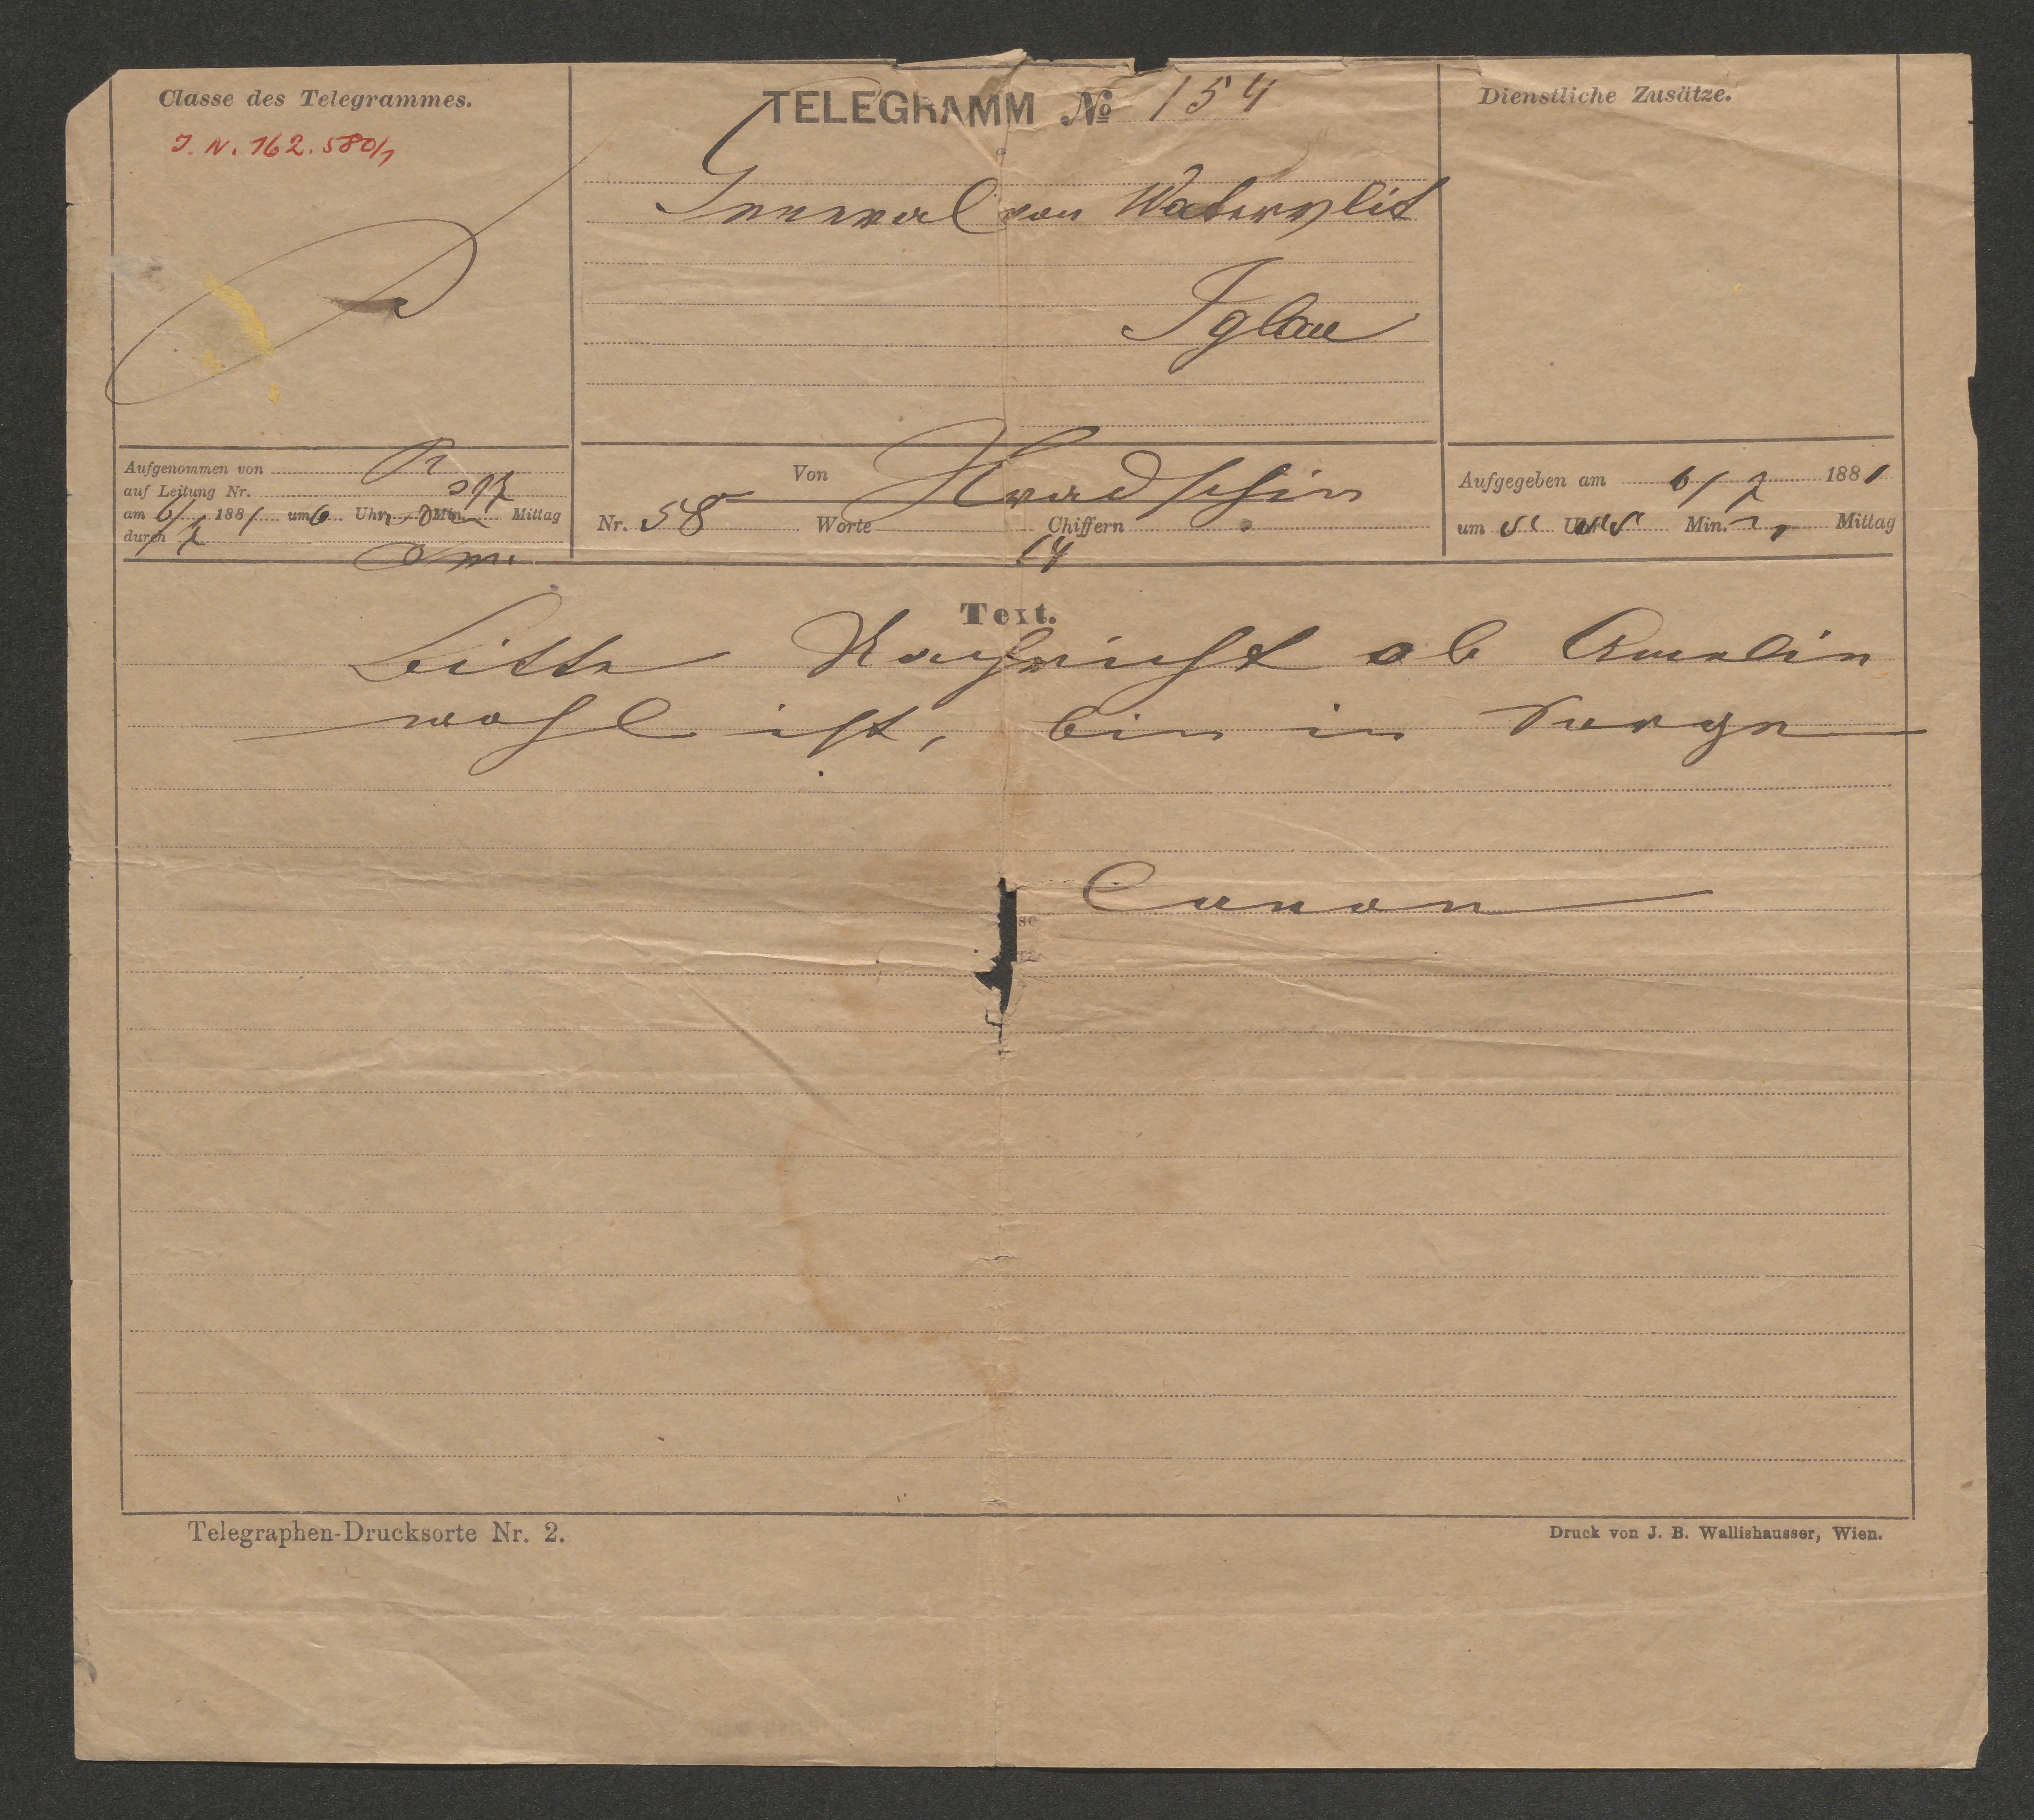 Classe des Telegrammes.
J. N. 162.580/1
TELEGRAMM № 154
General von Watervlit
Iglau
Dienstliche Zusätze.
Aufgenommen von
auf Leitung Nr. 397
am 6/7 1881 um 6 Uhr Min. Mittag
durch
Von Hradschin
Nr. 58 Worte 14 Chiffern
Aufgegeben am 6/7 1881
um Uhr Min. Mittag
Text.
bitte Nachricht ob Amelin
wohl ist, bin in Sorge
Canon
Telegraphen-Drucksorte Nr. 2.
Druck von J. B. Wallishausser, Wien.